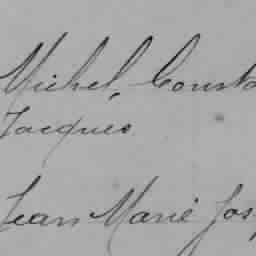 Michel, Const
Jacques
Jean Marie Jos